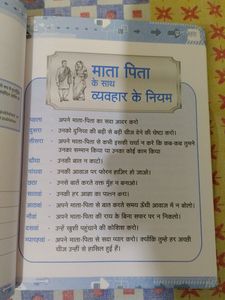 माता पिता
के साथ
व्यवहार के नियम
पहला - अपने माता-पिता का सदा आदर करो
दूसरा - उनको दुनिया की बड़ी से बड़ी चीज देने की चेष्टा करो।
तीसरा - अपने माता-पिता से कभी इसकी चर्चा न करें कि कब-कब तुमने
उनका सम्मान किया या उनका कोई काम किया
चौथा - उनकी बात न काटो।
पांचवा - उनकी आवाज पर फौरन हाजिर हो जाओ।
छठा - उनसे बातें करते वक्त मुंह न बनाओ।
सातवां - उनकी हर आज्ञा का पालन करो।
आठवां - अपने माता-पिता से बात करते समय ऊँची आवाज में न बोलो।
नौवां - अपने माता-पिता की राय के बिना सफर पर न निकलो।
दसवां - उन्हें खुशी पहुंचाने की कोशिश करो।
ग्यारहवां - अपने माता-पिता से सदा प्यार करो। क्योंकि तुम्हें हर अच्छी
चीज उन्हीं से हासिल हुई हैं।